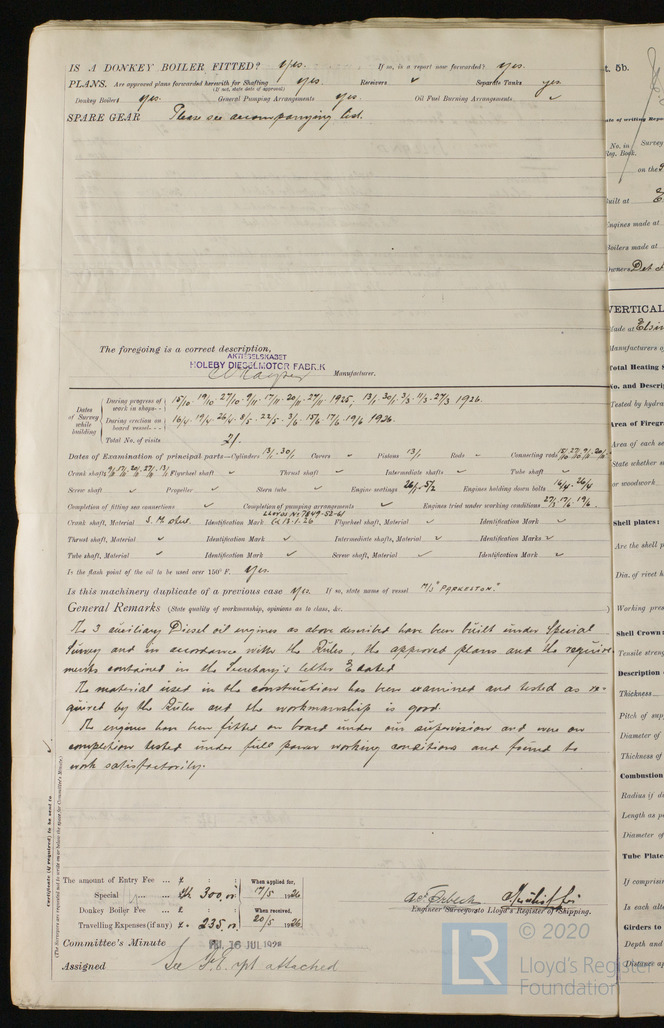 IS A DONKEY BOILER FITTED? Yes. If so, is a report now forwarded? Yes.
PLANS. Are approved plans forwarded herewith for Shafting Yes. Receivers ✓ Separate Tanks yes
(If not, state date of approval)
Donkey Boilers Yes. General Pumping Arrangements Yes. Oil Fuel Burning Arrangements ✓
SPARE GEAR Please see accompanying list.
The foregoing is a correct description,
AKTIESELSKABET
HOLEBY DIESELMOTOR FABRIK
Manufacturer.
Dates of Survey while building
During progress of work in shops - - 15/10 19/10 27/10 9/11 17/11 20/11 27/11 1925. 13/1 30/1 3/3 11/3 27/3 1926.
During erection on board vessel - - - 16/4 19/4 26/4 8/5 22/5 3/6 15/6 17/6 19/6 1926.
Total No. of visits 21.
Dates of Examination of principal parts—Cylinders 13/1. 30/1 Covers ✓ Pistons 13/1 Rods ✓ Connecting rods
Crank shafts Flywheel shaft ✓ Thrust shaft ✓ Intermediate shafts ✓ Tube shaft ✓
Screw shaft ✓ Propeller ✓ Stern tube ✓ Engine seatings Engines holding down bolts 16/4. 26/4
Completion of fitting sea connections ✓ Completion of pumping arrangements ✓ Engines tried under working conditions 27/3 17/6 19/6.
LLOYDS No 7849-52-61
Crank shaft, Material S. M. steel Identification Mark 13-1-26 Flywheel shaft, Material ✓ Identification Mark ✓
Thrust shaft, Material ✓ Identification Mark ✓ Intermediate shafts, Material ✓ Identification Marks ✓
Tube shaft, Material ✓ Identification Mark ✓ Screw shaft, Material ✓ Identification Mark ✓
Is the flash point of the oil to be used over 150° F. Yes.
Is this machinery duplicate of a previous case Yes. If so, state name of vessel M/S "PARKESTON."
General Remarks (State quality of workmanship, opinions as to class, &c.
The 3 auxiliary Diesel oil engines as above described have been built under Special
Survey and in accordance with the Rules, the approved plans and the require-
ments contained in the Secretary's letter E dated
The material used in the construction has been examined and tested as re-
quired by the Rules and the workmanship is good.
The engines have been fitted on board under our supervision and were on
completion tested under full power working conditions and found to
work satisfactorily.
Certificate (if required) to be sent to
(The Surveyors are requested not to write on or below the space for Committee's Minute.)
The amount of Entry Fee ... £ : : When applied for,
Special ... ... 300,00 17/5 1926
Donkey Boiler Fee ... £ : : When received,
Travelling Expenses (if any) £ 235,00 20/5 1926
Engineer Surveyor to Lloyd's Register of Shipping.
Committee's Minute FRI. 16 JUL 1926
Assigned See F.E. rpt attached
t. 5b.
ate of writing Repo
No. in Survey
Reg. Book.
on the
Built at
Engines made at
Boilers made at
Owners Det
VERTICAL
Made at Elsin
Manufacturers o
Total Heating S
No. and Descrip
Tested by hydra
Area of Firegra
Area of each se
State whether s
or woodwork
Shell plates:
Are the shell p
Dia. of rivet h
Working pres
Shell Crown:
Tensile streng
Description o
Thickness
Pitch of sup
Diameter of
Thickness of
Combustion
Radius (if d
Length as p
Diameter of
Tube Plate
If comprise
Is each alte
Girders to
Depth and
Distance ap
© 2020
LR
Lloyd's Register
Foundation